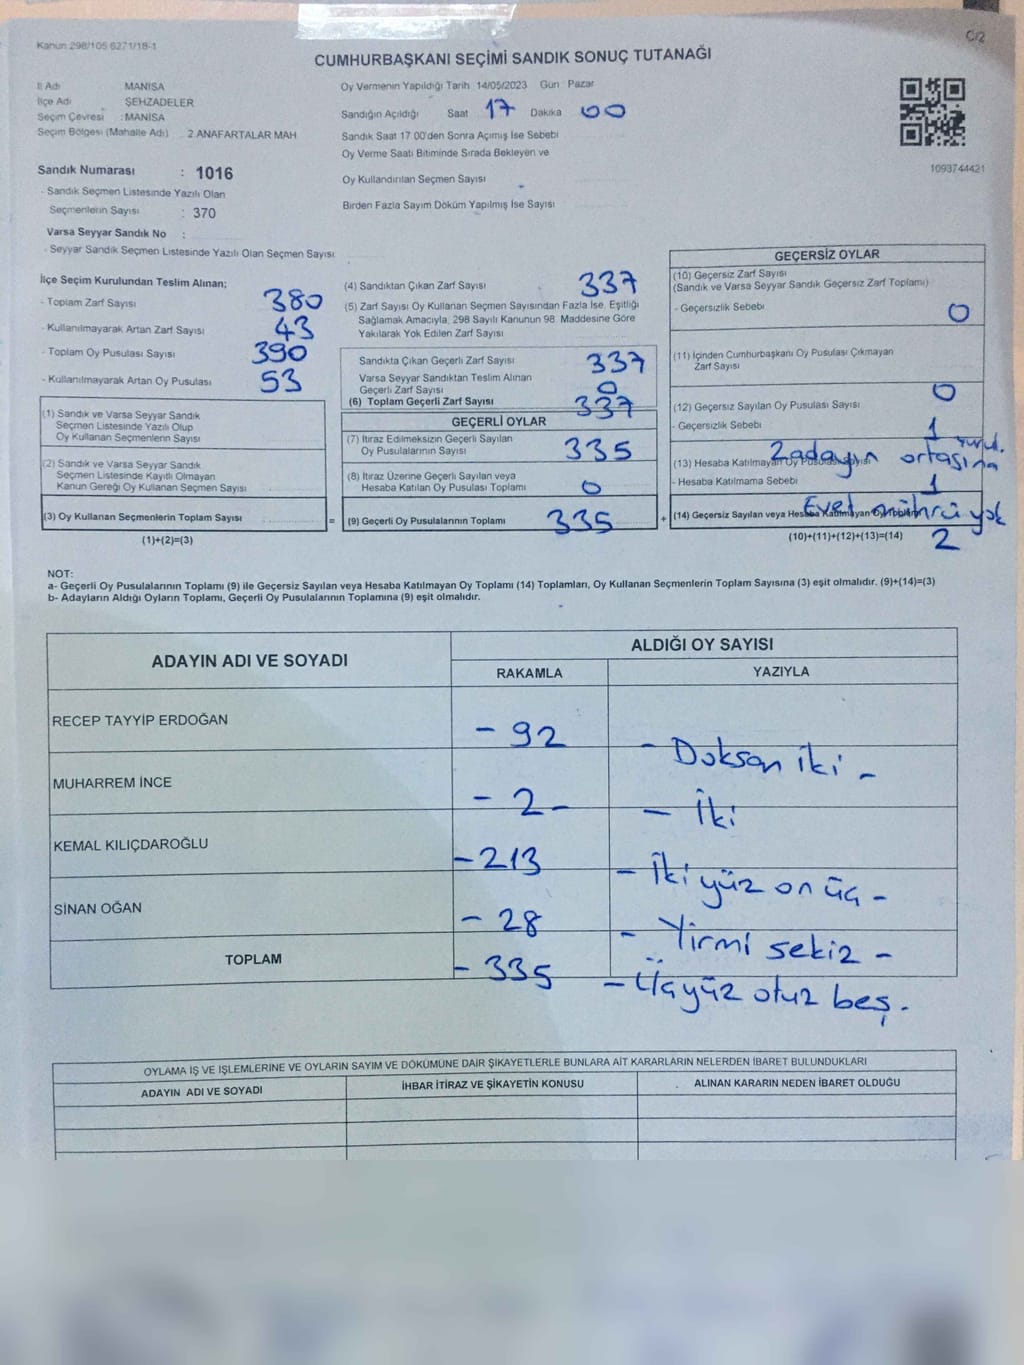 Kanun 298/105 6271/18-1
C/2
CUMHURBAŞKANI SEÇİMİ SANDIK SONUÇ TUTANAĞI
İl Adı MANİSA
İlçe Adı ŞEHZADELER
Seçim Çevresi : MANİSA
Seçim Bölgesi (Mahalle Adı) 2 ANAFARTALAR MAH
Sandık Numarası : 1016
- Sandık Seçmen Listesinde Yazılı Olan
Seçmenlerin Sayısı : 370
Varsa Seyyar Sandık No :
- Seyyar Sandık Seçmen Listesinde Yazılı Olan Seçmen Sayısı:
Oy Vermenin Yapıldığı Tarih 14/05/2023 Gün Pazar
Sandığın Açıldığı Saat 17 Dakika 00
Sandık Saat 17.00'den Sonra Açımış İse Sebebi
Oy Verme Saati Bitiminde Sırada Bekleyen ve
Oy Kullandırılan Seçmen Sayısı
Birden Fazla Sayım Döküm Yapılmış İse Sayısı
1093744421
İlçe Seçim Kurulundan Teslim Alınan;
- Toplam Zarf Sayısı 380
- Kullanılmayarak Artan Zarf Sayısı 43
- Toplam Oy Pusulası Sayısı 390
- Kullanılmayarak Artan Oy Pusulası 53
(1) Sandık ve Varsa Seyyar Sandık
Seçmen Listesinde Yazılı Olup
Oy Kullanan Seçmenlerin Sayısı
(2) Sandık ve Varsa Seyyar Sandık
Seçmen Listesinde Kayıtlı Olmayan
Kanun Gereği Oy Kullanan Seçmen Sayısı
(3) Oy Kullanan Seçmenlerin Toplam Sayısı =
(1)+(2)=(3)
(4) Sandıktan Çıkan Zarf Sayısı 337
(5) Zarf Sayısı Oy Kullanan Seçmen Sayısından Fazla İse, Eşitliği
Sağlamak Amacıyla, 298 Sayılı Kanunun 98. Maddesine Göre
Yakılarak Yok Edilen Zarf Sayısı
Sandıkta Çıkan Geçerli Zarf Sayısı 337
Varsa Seyyar Sandıktan Teslim Alınan
Geçerli Zarf Sayısı 0
(6) Toplam Geçerli Zarf Sayısı 337
GEÇERLİ OYLAR
(7) İtiraz Edilmeksizin Geçerli Sayılan
Oy Pusulalarının Sayısı 335
(8) İtiraz Üzerine Geçerli Sayılan veya
Hesaba Katılan Oy Pusulası Toplamı 0
(9) Geçerli Oy Pusulalarının Toplamı 335 +
GEÇERSİZ OYLAR
(10) Geçersiz Zarf Sayısı
(Sandık ve Varsa Seyyar Sandık Geçersiz Zarf Toplamı)
- Geçersizlik Sebebi 0
(11) İçinden Cumhurbaşkanı Oy Pusulası Çıkmayan
Zarf Sayısı
0
(12) Geçersiz Sayılan Oy Pusulası Sayısı
- Geçersizlik Sebebi 1
2 adayın ortasına vurul.
(13) Hesaba Katılmayan Oy Pusulası Sayısı
- Hesaba Katılmama Sebebi 1
Evet mührü yok
(14) Geçersiz Sayılan veya Hesaba Katılmayan Oy Toplamı
(10)+(11)+(12)+(13)=(14) 2
NOT:
a- Geçerli Oy Pusulalarının Toplamı (9) ile Geçersiz Sayılan veya Hesaba Katılmayan Oy Toplamı (14) Toplamları, Oy Kullanan Seçmenlerin Toplam Sayısına (3) eşit olmalıdır. (9)+(14)=(3)
b- Adayların Aldığı Oyların Toplamı, Geçerli Oy Pusulalarının Toplamına (9) eşit olmalıdır.
ADAYIN ADI VE SOYADI
ALDIĞI OY SAYISI
RAKAMLA YAZIYLA
RECEP TAYYİP ERDOĞAN - 92 - Doksan iki -
MUHARREM İNCE - 2 - - İki
KEMAL KILIÇDAROĞLU - 213 - İki yüz on üç -
SİNAN OĞAN - 28 - Yirmi sekiz -
TOPLAM - 335 - Üçyüz otuz beş.
OYLAMA İŞ VE İŞLEMLERİNE VE OYLARIN SAYIM VE DÖKÜMÜNE DAİR ŞİKAYETLERLE BUNLARA AİT KARARLARIN NELERDEN İBARET BULUNDUKLARI
ADAYIN ADI VE SOYADI İHBAR İTİRAZ VE ŞİKAYETİN KONUSU ALINAN KARARIN NEDEN İBARET OLDUĞU